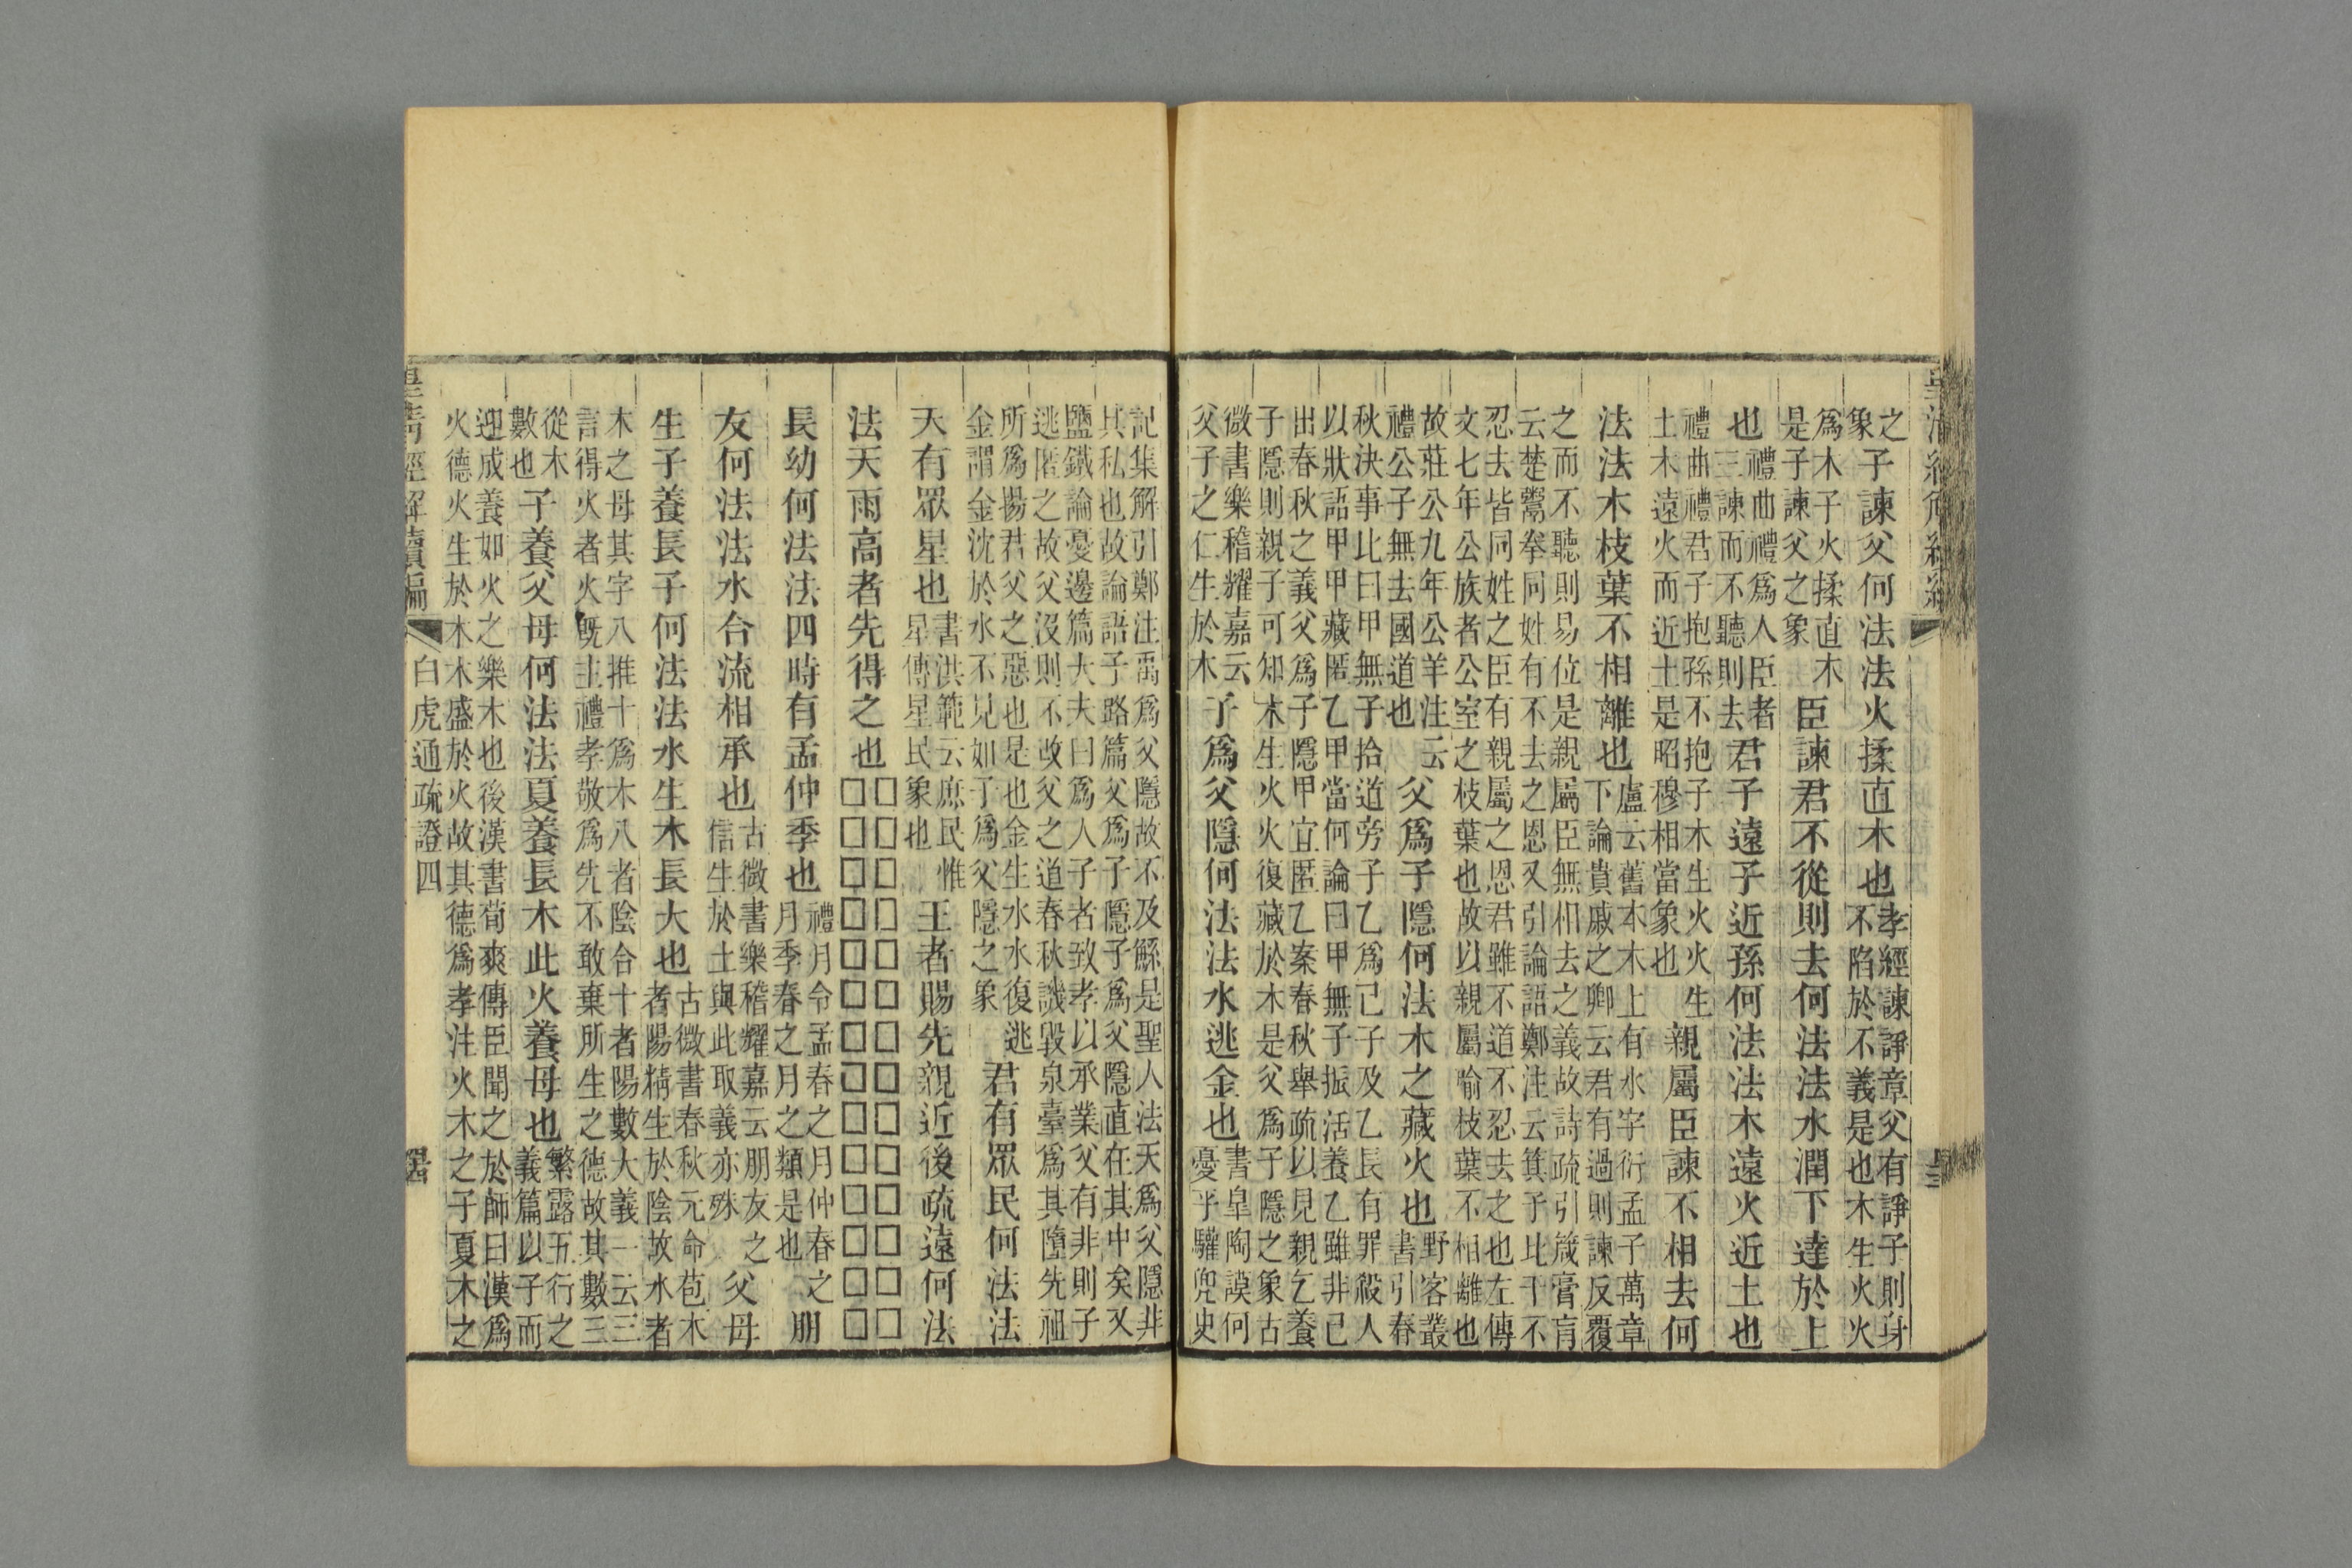 之
象
子諫父何法法火揉直木也
孝經諫諍章父有諍子則身
不陷於不義是也木生火火
爲木子火揉直木
是子諫父之象
臣諫君不從則去何法法水潤下達於上
也
禮曲禮爲人臣者
三諫而不聽則去
君子遠子近孫何法法木遠火近土也
禮曲禮君子抱孫不抱子木生火火生
土木遠火而近土是昭穆相當象也
親屬臣諫不相去何
法法木枝葉不相離也
盧云舊本木上有水字衍孟子萬章
下論貴戚之卿云君有過則諫反覆
之而不聽則易位是親屬臣無相去之義故詩疏引箴膏肓
云楚鬻拳同姓有不去之恩又引論語鄭注云箕子比干不
忍去皆同姓之臣有親屬之恩君雖不道不忍去之也左傳
文七年公族者公室之枝葉也故以親屬喻枝葉不相離也
故莊公九年公羊注云
禮公子無去國道也
父爲子隱何法木之藏火也
野客叢
書引春
秋決事比曰甲無子拾道旁子乙爲己子及乙長有罪殺人
以狀語甲甲藏匿乙甲當何論曰甲無子振活養乙雖非己
出春秋之義父爲子隱甲宜匿乙案春秋舉疏以見親乞養
子隱則親子可知木生火火復藏於木是父爲子隱之象古
微書樂稽耀嘉云
父子之仁生於木
子爲父隱何法法水逃金也
書皐陶謨何
憂乎驩兜史
記集解引鄭注禹爲父隱故不及鯀是聖人法天爲父隱非
其私也故論語子路篇父爲子隱子爲父隱直在其中矣又
鹽鐵論憂邊篇大夫曰爲人子者致孝以承業父有非則子
逃匿之故父沒則不改父之道春秋譏毀泉臺爲其隳先祖
所爲揚君父之惡也是也金生水水復逃
金謂金沈於水不見如子爲父隱之象
君有眾民何法法
天有眾星也
書洪範云庶民惟
星傳星民象也
王者賜先親近後疏遠何法
法天雨高者先得之也
□□□□□□□□□□□□□□
□□□□□□□□□□□□□□
長幼何法法四時有孟仲季也
禮月令孟春之月仲春之
月季春之月之類是也
朋
友何法法水合流相承也
古微書樂稽耀嘉云朋友之
信生於土與此取義亦殊
父母
生子養長子何法法水生木長大也
古微書春秋元命苞木
者陽精生於陰故水者
木之母其字八推十爲木八者陰合十者陽數大義一云三
言得火者火旣主禮孝敬爲先不敢棄所生之德故其數三
從木
數也
子養父母何法法夏養長木此火養母也
繁露五行之
義篇以子而
迎成養如火之樂木也後漢書荀爽傳臣聞之於師曰漢爲
火德火生於木木盛於火故其德爲孝注火木之子夏木之
皇清經解續編
白虎通疏證四